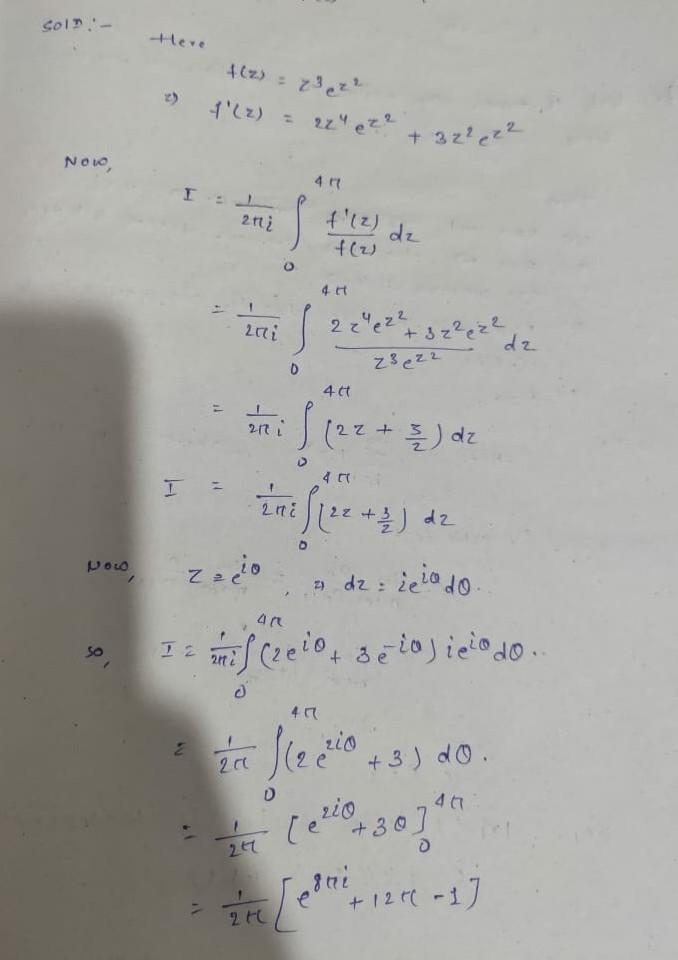 Sol:-
Here
f(z) = z³e^{z²}
⇒ f'(z) = 2z⁴e^{z²} + 3z²e^{z²}
Now,
I = 1/(2πi) ∫₀^{4π} f'(z)/f(z) dz
= 1/(2πi) ∫₀^{4π} (2z⁴e^{z²} + 3z²e^{z²})/(z³e^{z²}) dz
= 1/(2πi) ∫₀^{4π} (2z + 3/z) dz
I = 1/(2πi) ∫₀^{4π} (2z + 3/z) dz
Now, z = e^{iθ}, ⇒ dz = ie^{iθ}dθ.
So, I = 1/(2πi) ∫₀^{4π} (2e^{iθ} + 3e^{-iθ}) ie^{iθ}dθ..
= 1/(2π) ∫₀^{4π} (2e^{2iθ} + 3) dθ.
= 1/(2π) [e^{2iθ} + 3θ]₀^{4π}
= 1/(2π) [e^{8πi} + 12π - 1]